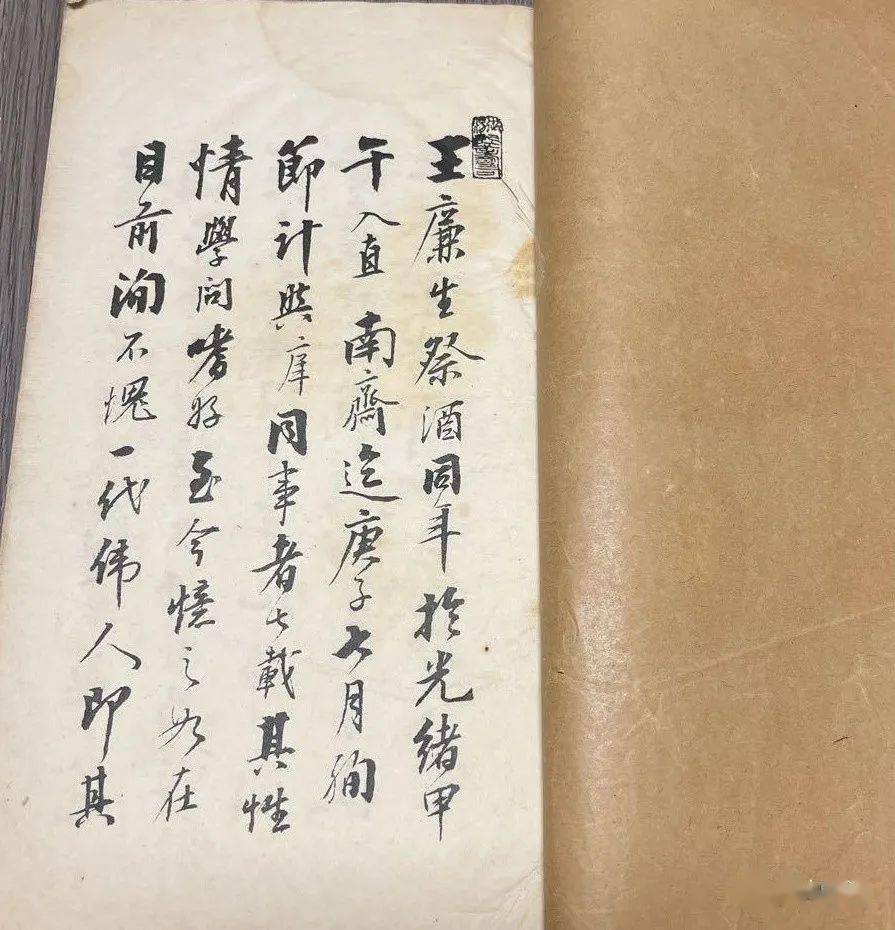 王廉生祭酒同年於光緒甲
午入直南齋迄庚子七月殉
節計與庠同事者七載其性
情學問嗜好至今憶之如在
目前洵不愧一代偉人即其